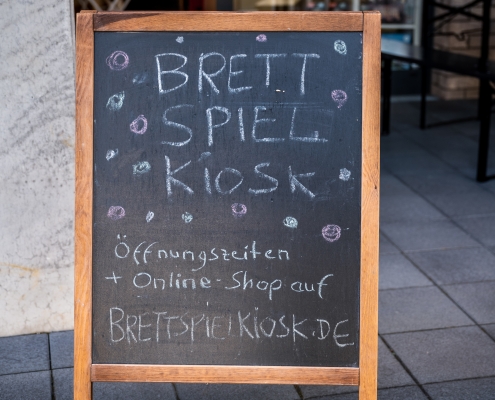 BRETT
SPIEL
Kiosk
Öffnungszeiten
+ Online-Shop auf
BRETTSPIElKIOSK.DE